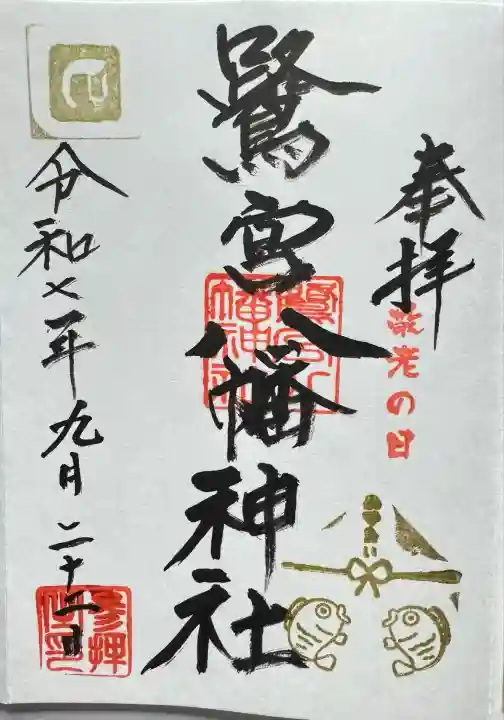 奉拝
敬老の日
鷺宮八幡神社
鷺宮八
幡神社
令和七年九月二十二日